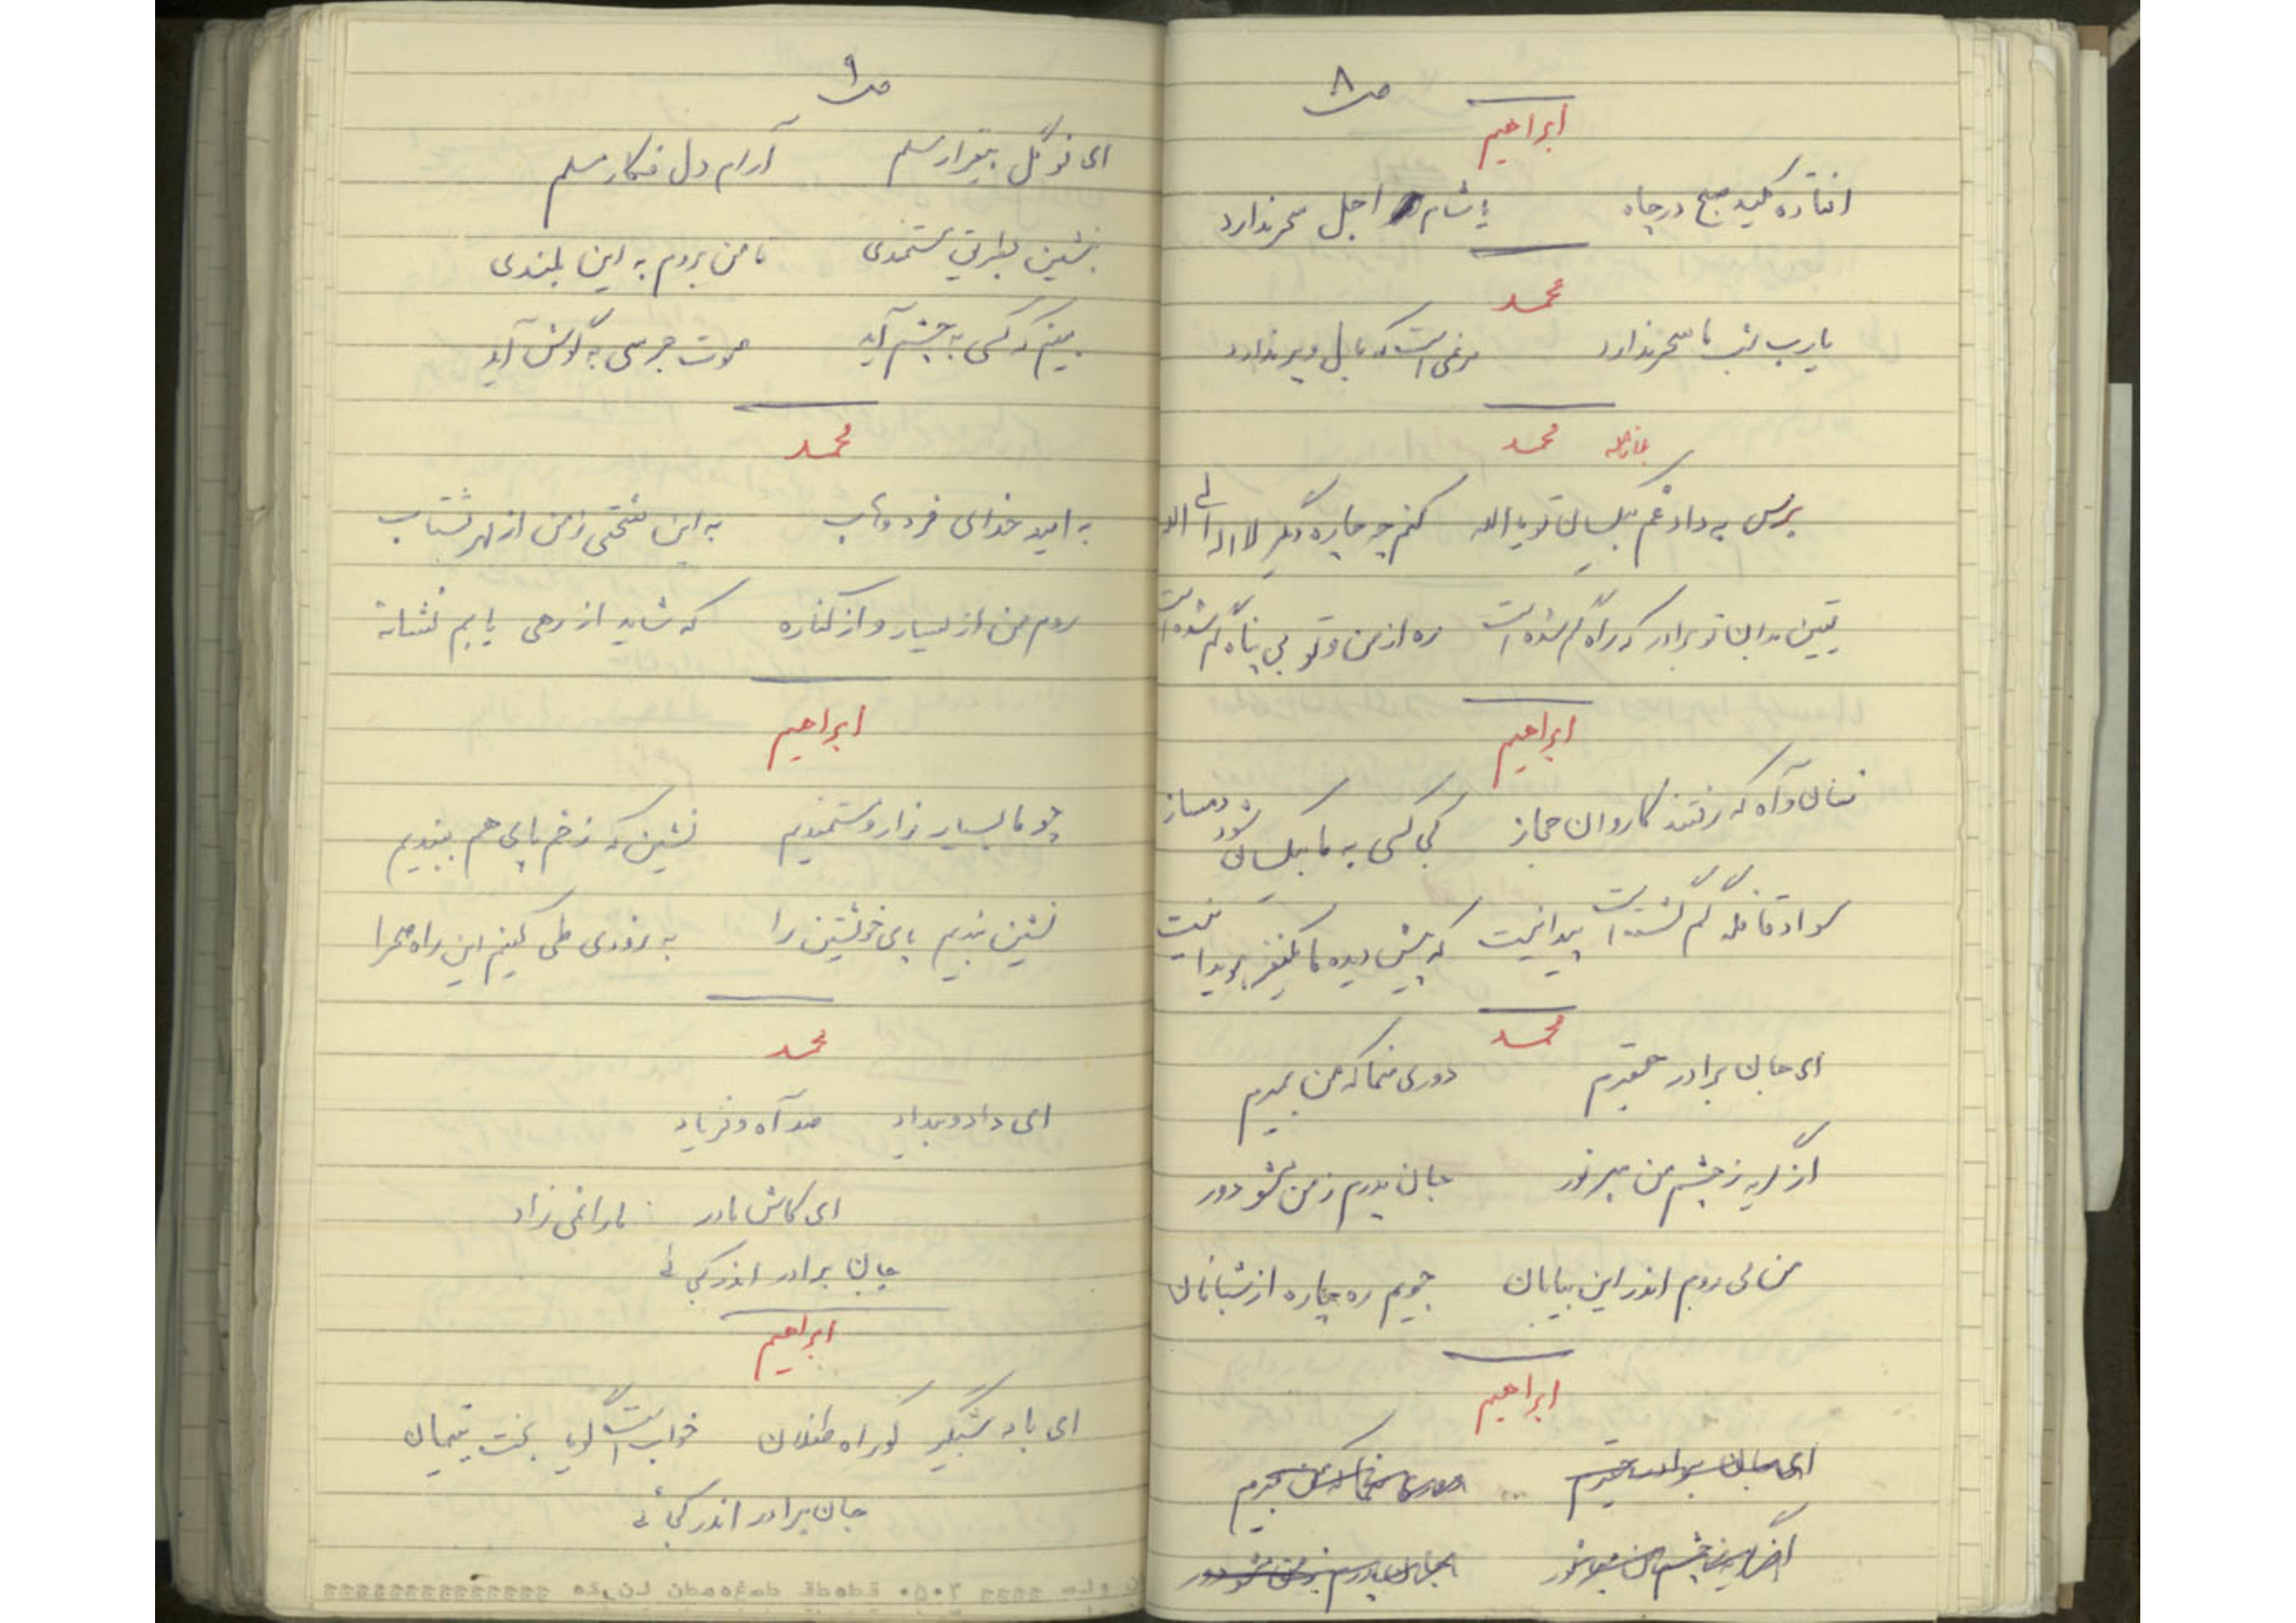 ص ۸
ابراهیم
افتاده کلید صبح در چاه یا شام اجل سحر ندارد
محمد
یا رب شب ما سحر ندارد مرغی است که بال و پر ندارد
محمد
برس به داد غم بیکسان تو یا الله کنم چو چاره دیگر لا اله الی الله
یقین بدان تو برادر که راه گم شده است ره از من و تو بی پناه گم شده است
ابراهیم
فغان و آه که رفتند کاروان حجاز کی کسی به ما بیکسان شود دمساز
سواد قافله گم گشته است پیدا نیست که پیش دیده ما یکنفر هویدا نیست
محمد
ای جان برادر حقیرم دوری منما که من بمیرم
از گریه ز چشم من مبر نور جان پدرم ز من مشو دور
من می روم اندر این بیابان جویم ره چاره از شبانان
ابراهیم
ای جان برادر حقیرم دوری منما که من بمیرم
از گریه ز چشم من مبر نور جان پدرم ز من مشو دور
ص ۹
ای نو گل بیقرار مسلم آرام دل فکار مسلم
بنشین بطریق مستمندی تا من بروم به این بلندی
بینم که کسی به چشم آید صوت جرسی به گوش آید
محمد
به امید خدای فرد وهاب به این سختی ز من از بهر بشتاب
روم من از یسار و از کناره که شاید از رهی یابم نشانه
ابراهیم
چو ما بسیار زار و مستمندیم نشین که زخم پای هم ببندیم
نشین بندیم پای خویشتن را به زودی طی کنیم این راه صحرا
محمد
ای داد و بیداد صد آه و فریاد
ای کاش مادر ما را نمی زاد
جان برادر اندر کجائی
ابراهیم
ای باد شبگیر کو راه طفلان خواب است گویا بخت یتیمان
جان برادر اندر کجائی